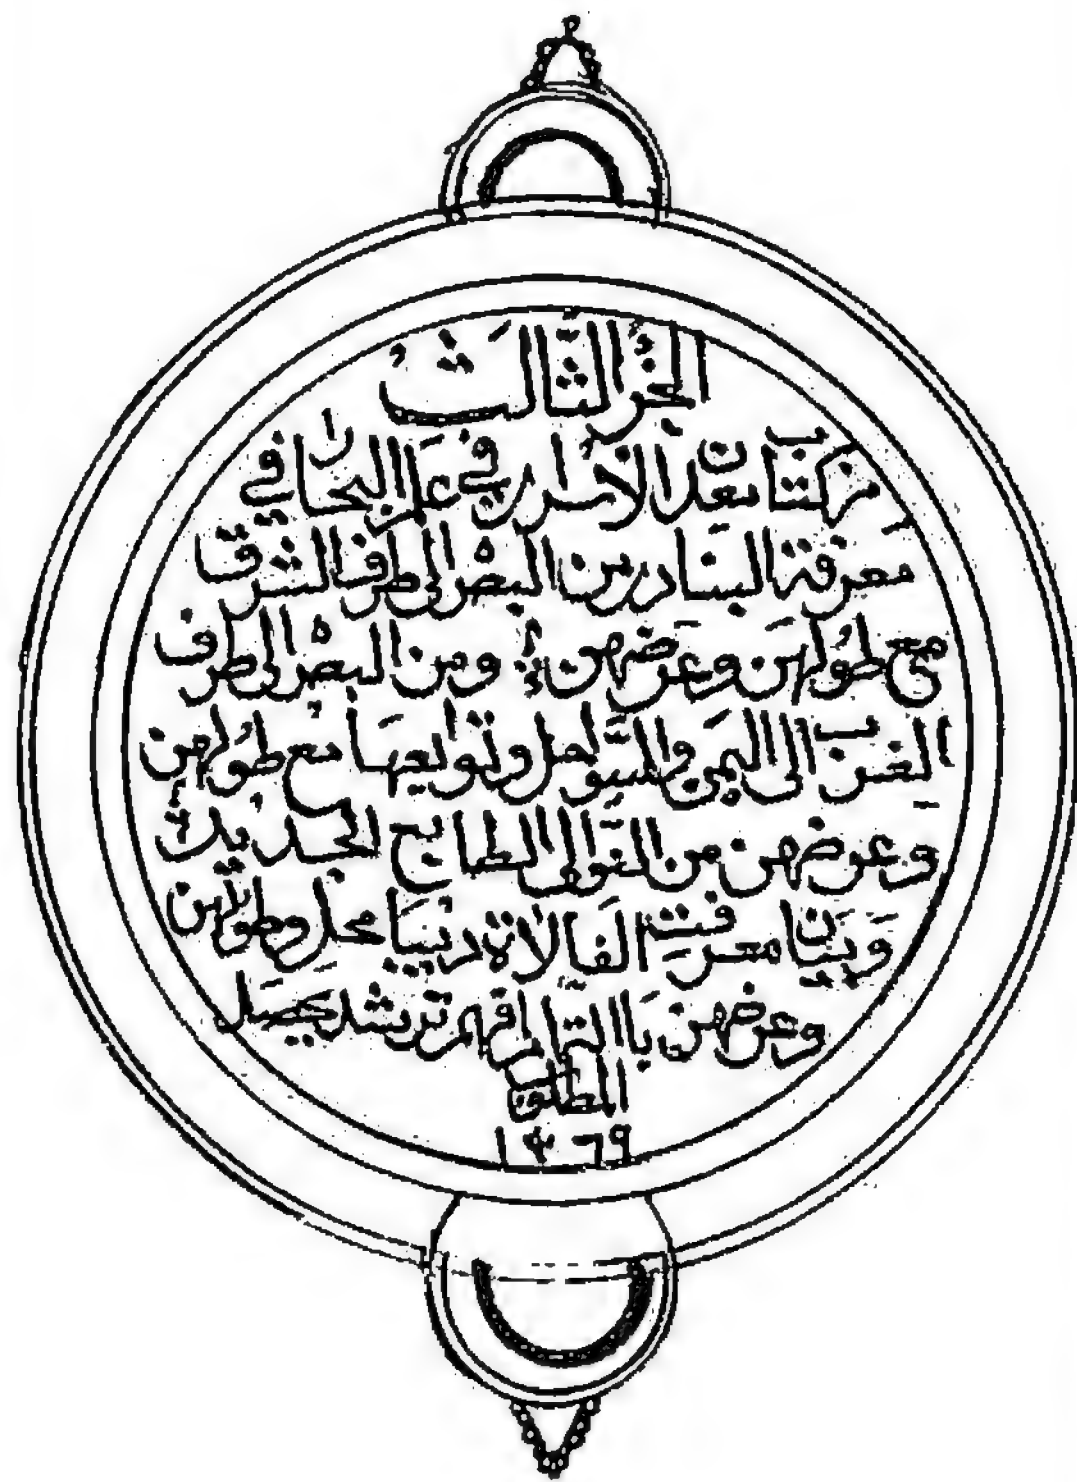 الجزء الثالث
من كتاب معدن الاسرار في علم البحار في
معرفة البنادر من البصره الى طرف الشرق
مع طولهن وعرضهن ومن البصره الى طرف
الغرب الى اليمن والسواحل وتوابعها مع طولهن
وعرضهن من القوالف الطبايع الجديده
وبيان معرفت الفالات دنيبا محل وطولهن
وعرضهن باالتمام افهم ترشد يحصل
المطلوب
١٣٦٩